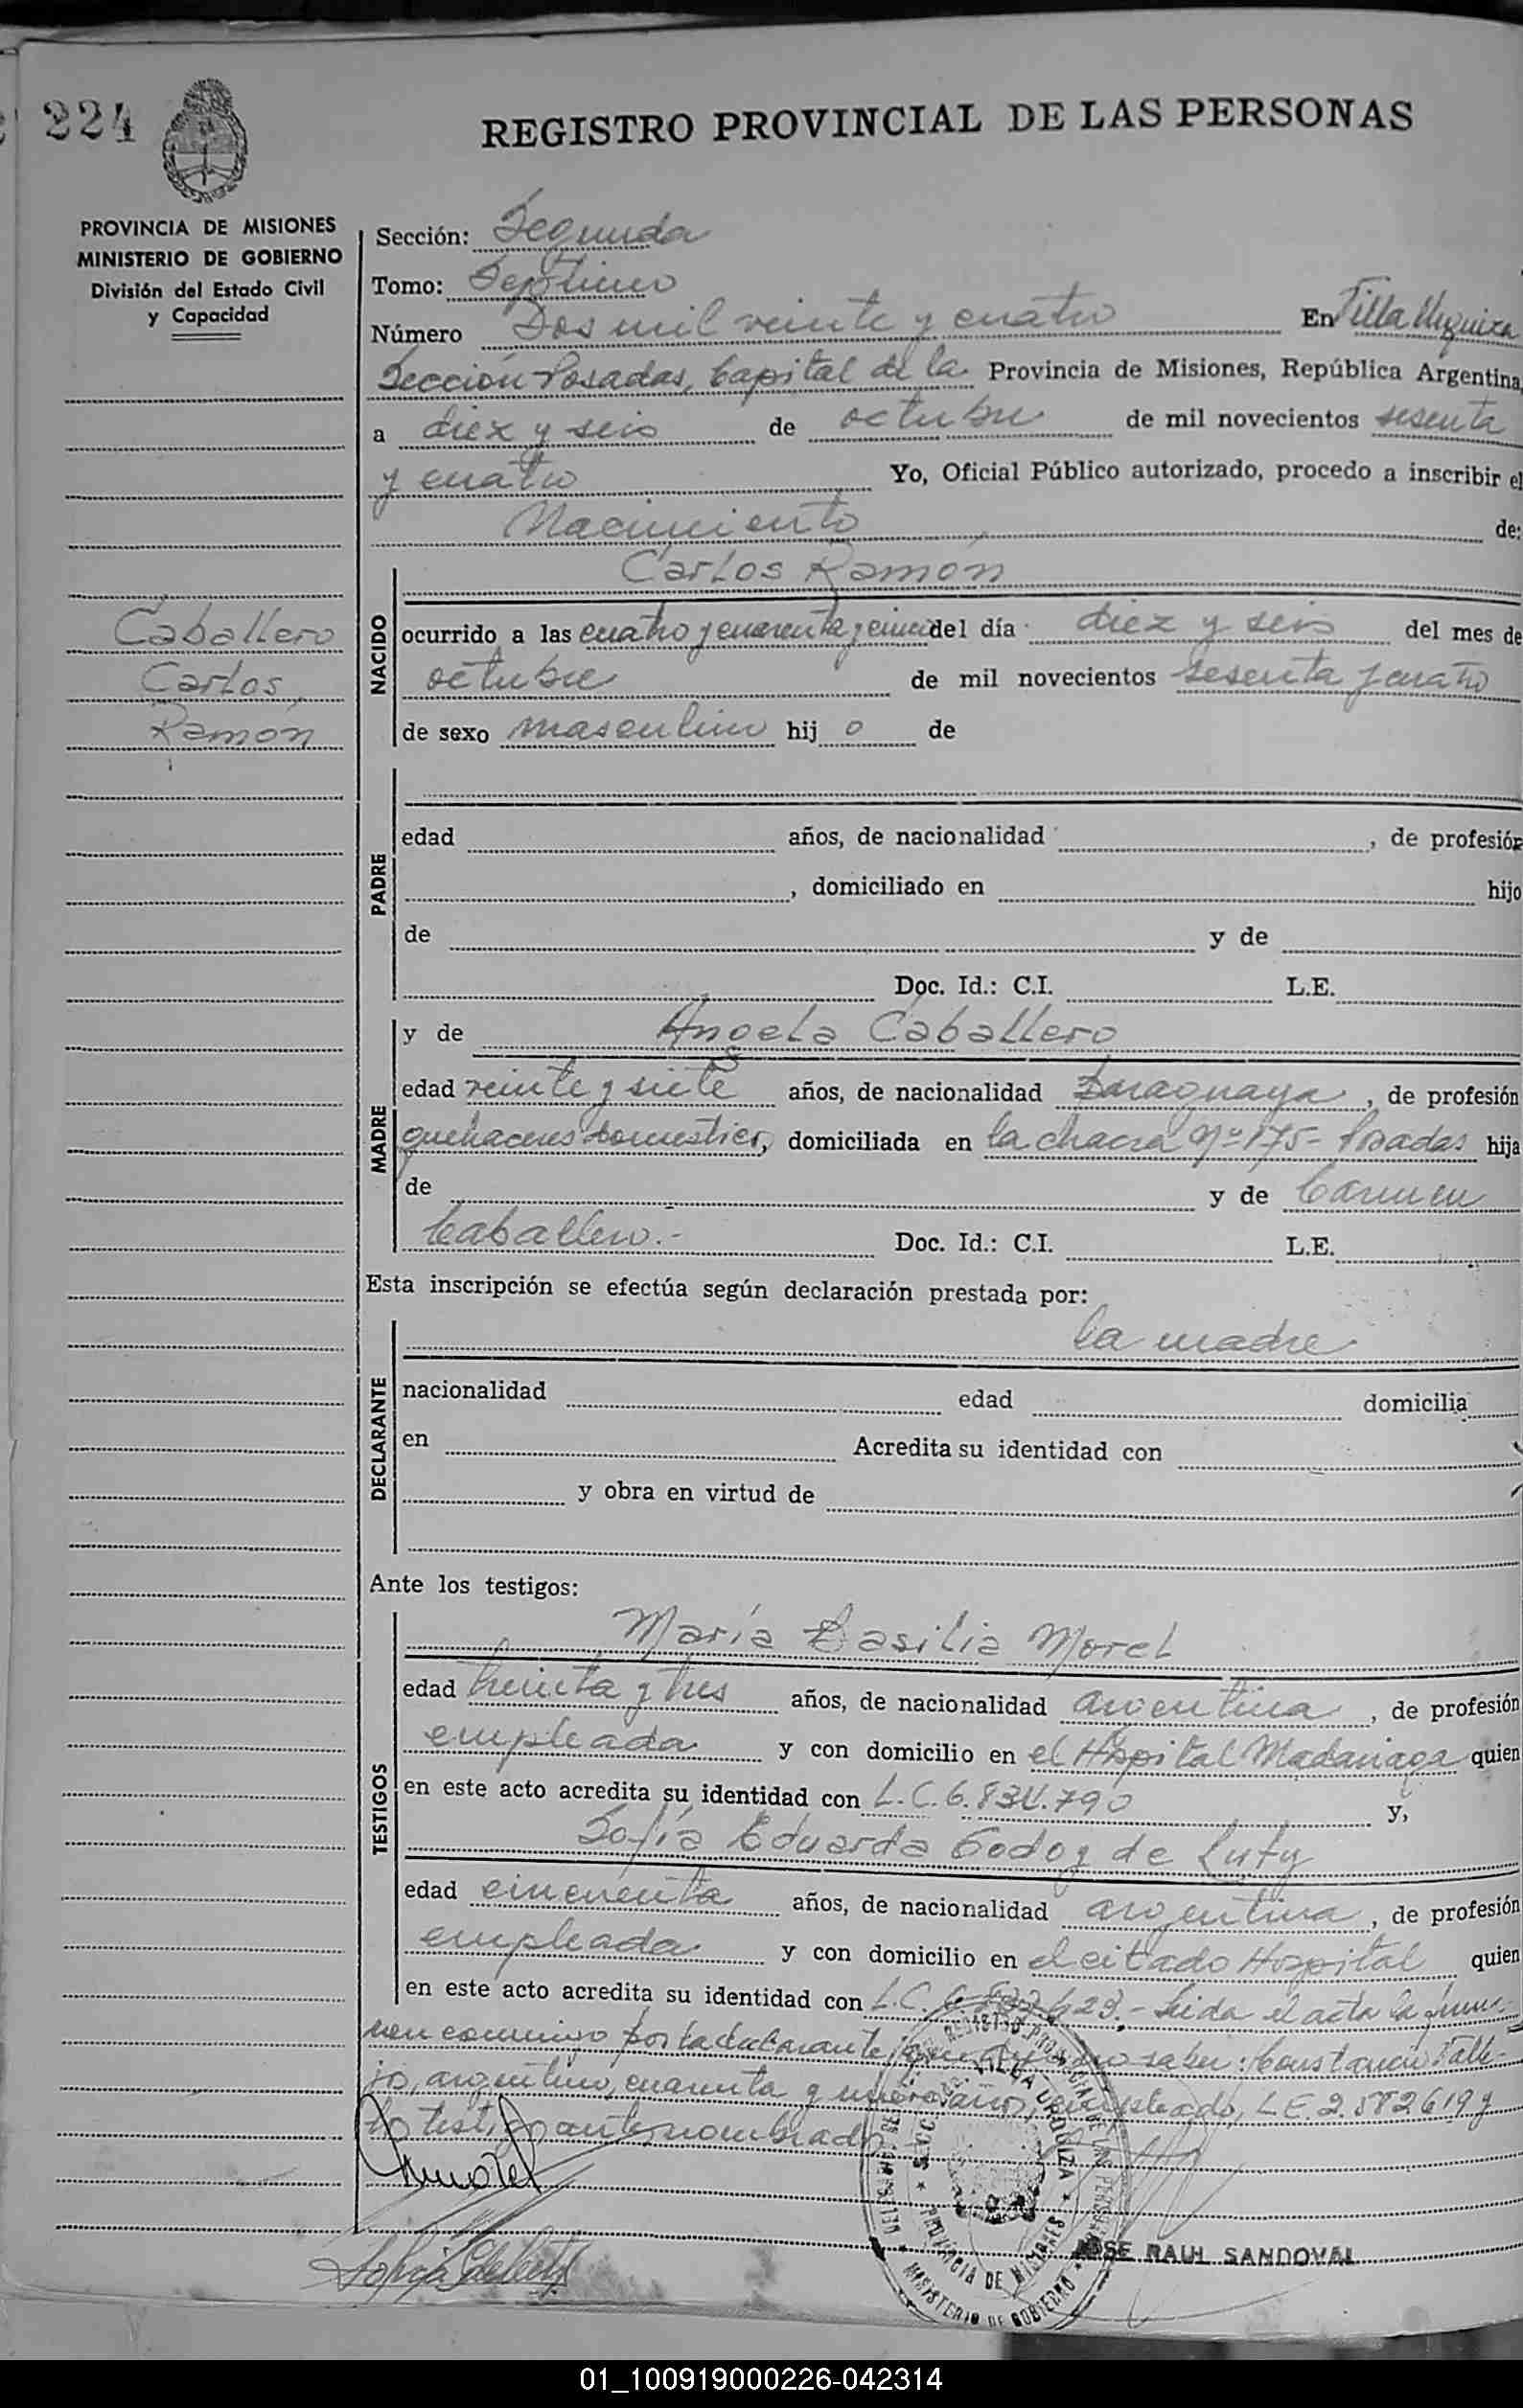 224
REGISTRO PROVINCIAL DE LAS PERSONAS
PROVINCIA DE MISIONES
MINISTERIO DE GOBIERNO
División del Estado Civil
y Capacidad
Sección: Segunda
Tomo: Septimo
Número Dos mil veinte y cuatro En Villa Urquiza
Sección Posadas, Capital de la Provincia de Misiones, República Argentina,
a diez y seis de octubre de mil novecientos sesenta
y cuatro Yo, Oficial Público autorizado, procedo a inscribir el
Nacimiento de:
Carlos Ramón
Caballero
Carlos
Ramón
NACIDO
ocurrido a las cuatro y cuarenta y cinco del día diez y seis del mes de
octubre de mil novecientos sesenta y cuatro
de sexo masculino hij o de
PADRE
edad años, de nacionalidad , de profesión
, domiciliado en hijo
de y de
Doc. Id.: C.I. L.E.
MADRE
y de Angela Caballero
edad veinte y siete años, de nacionalidad Paraguaya, de profesión
quehaceres domestico, domiciliada en la chacra Nº 175 - Posadas hija
de y de Carmen
Caballero.- Doc. Id.: C.I. L.E.
Esta inscripción se efectúa según declaración prestada por:
la madre
DECLARANTE
nacionalidad edad domicilia
en Acredita su identidad con
y obra en virtud de
Ante los testigos:
TESTIGOS
María Basilia Morel
edad treinta y tres años, de nacionalidad argentina, de profesión
empleada y con domicilio en el Hospital Madariaga quien
en este acto acredita su identidad con L.C. 6.834.790 y,
Sofía Eduarda Godoy de Luty
edad cincuenta años, de nacionalidad argentina, de profesión
empleada y con domicilio en el citado Hospital quien
en este acto acredita su identidad con L.C. - Leida el acta la firma-
ron conmigo por la declarante saber: Constancio Valle-
jo, argentino, cuarenta y nueve años, empleado, L.E. 2.582619 y
los testigos antes nombrados
Mmorel
REGISTRO PROVINCIAL DE LAS PERSONAS
SECC. VILLA URQUIZA
PROVINCIA DE MISIONES
MINISTERIO DE GOBIERNO
JOSE RAUL SANDOVAL
Sofia G de Luty
01_100919000226-042314